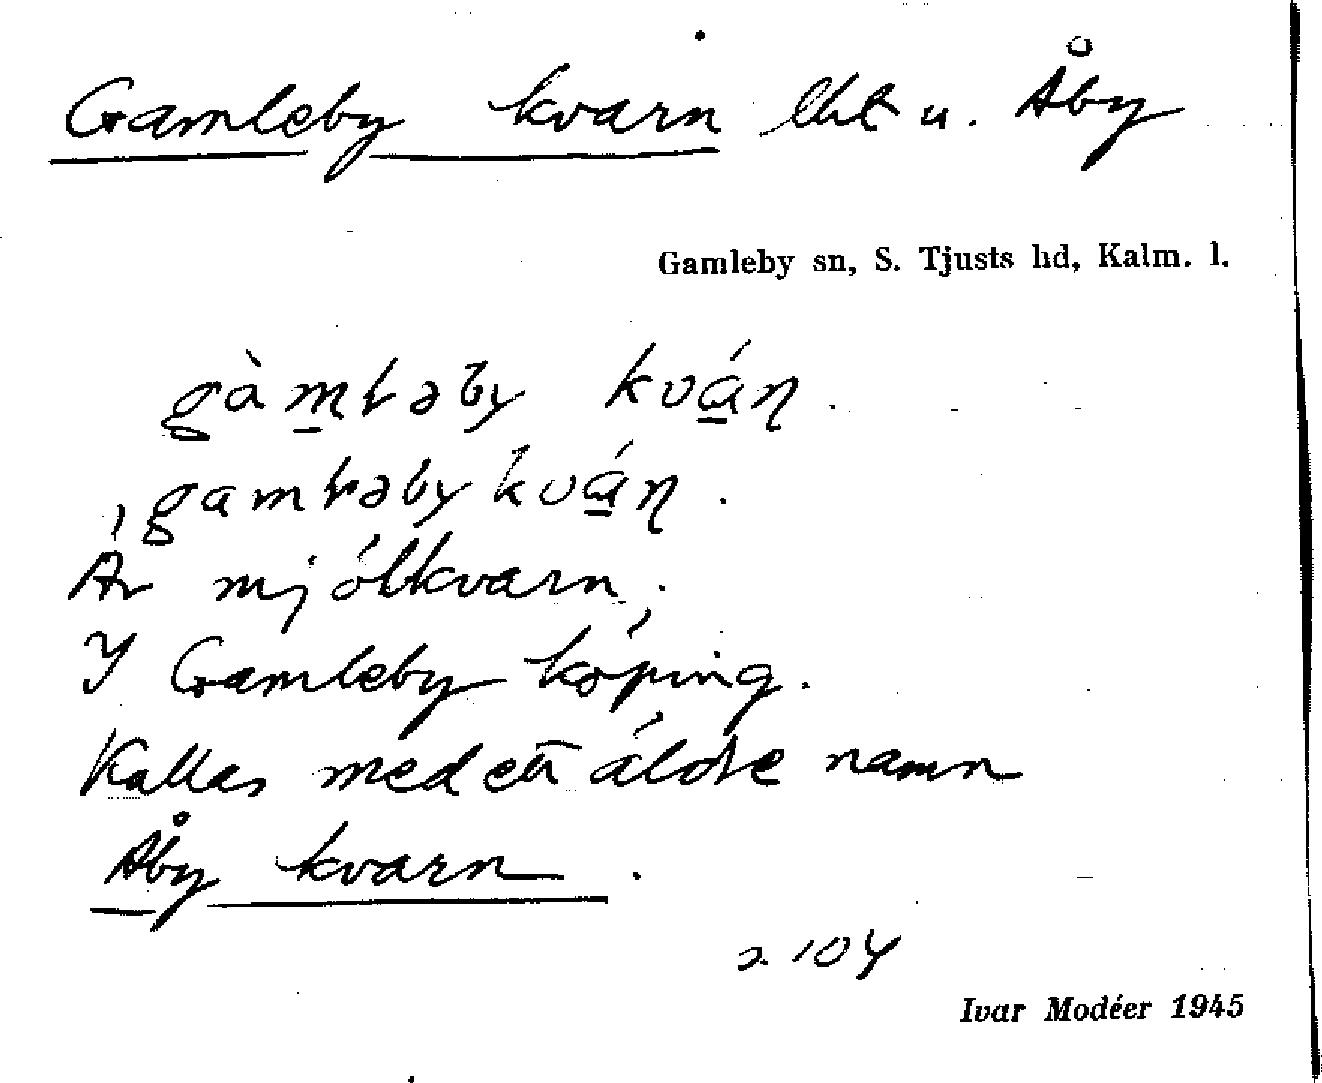 Gamleby kvarn lht u. Åby
Gamleby sn, S. Tjusts hd, Kalm. l.
gàm̲ləby kvá̲ɳ.
gamləby kvá̲ɳ.
Är mjölkvarn.
I Gamleby köping.
Kallas med ett äldre namn
Åby kvarn.
2 104
Ivar Modéer 1945